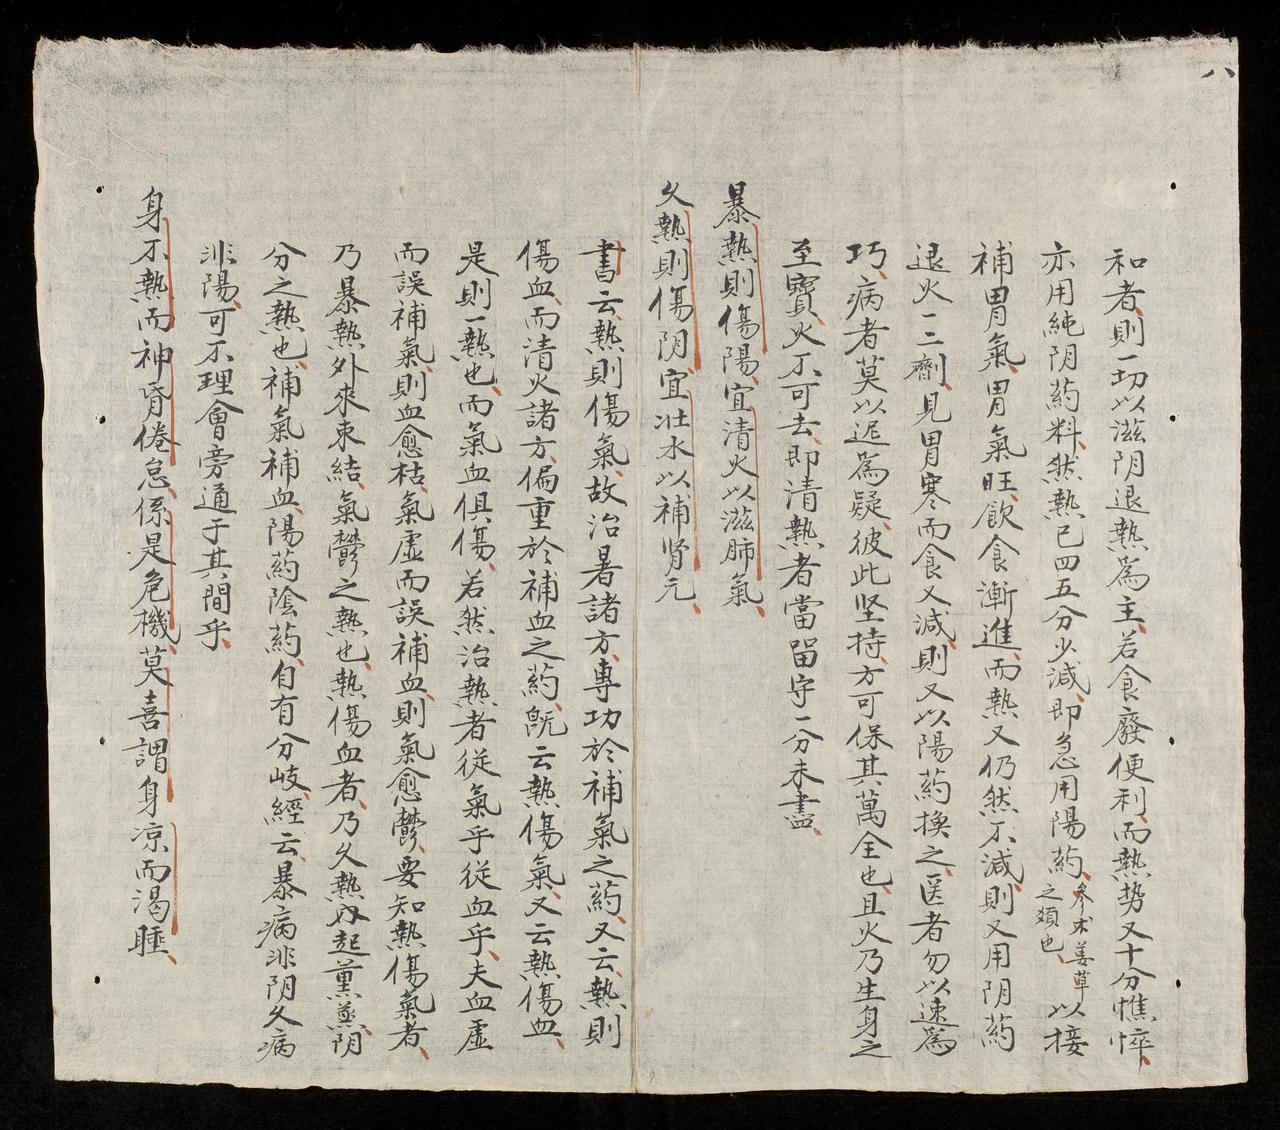 八
和者、則一切以滋阴退熱為主、若食廢便利、而熱势又十分憔悴、
亦用純阴葯料、然熱已四五分少減、即急用陽葯、參朮姜草之類也、以接
補胃氣、胃氣旺、飲食漸進、而熱又仍然不減、則又用阴葯
退火一二劑、見胃寒而食又減、則又以陽葯換之、医者勿以速為
巧、病者莫以迟為疑、彼此坚持、方可保其萬全也、且火乃生身之
至寶、火不可去、即清熱者當留守一分未盡、
暴熱則傷陽、宜清火以滋肺氣、
久熱則傷阴、宜壯水以補肾元、
書云、熱則傷氣、故治暑諸方、專功於補氣之葯、又云、熱則
傷血、而清火諸方、偏重於補血之葯、既云熱傷氣、又云熱傷血、
是則一熱也、而氣血俱傷、若然治熱者、從氣乎、從血乎、夫血虛
而誤補氣、則血愈枯、氣虛而誤補血、則氣愈鬱、要知熱傷氣者、
乃暴熱外來束結、氣鬱之熱也、熱傷血者、乃久熱內起薰蒸、阴
分之熱也、補氣補血、陽葯陰葯、自有分岐、經云、暴病非阴、久病
非陽、可不理會旁通于其間乎、
身不熱而神昏倦怠、係是危機、莫喜謂身凉而渴睡、